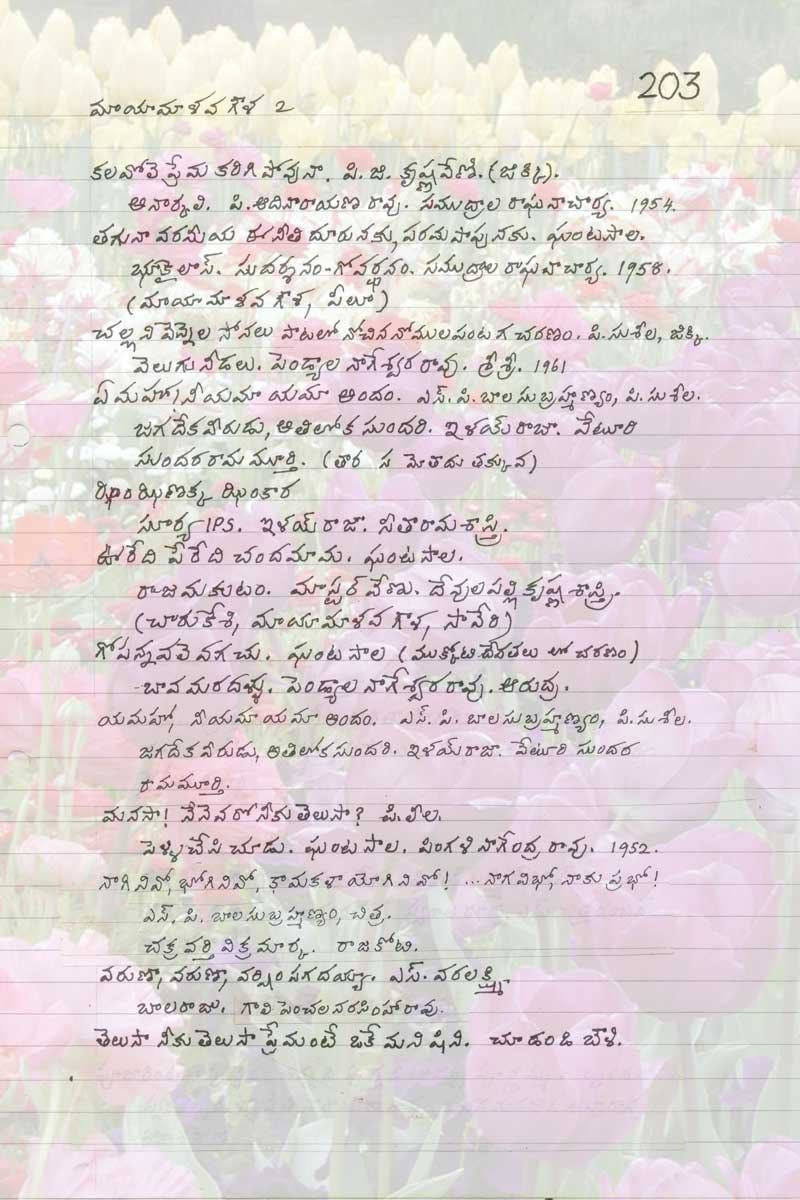 203
మాయామాళవ గౌళ 2
కలవోలె ప్రేమ కరిగిపోవునా. పి. జి. కృష్ణవేణి. (జిక్కి).
అనార్కలి. పి.ఆదినారాయణ రావు. సముద్రాల రాఘవాచార్య. 1954.
తగునా వరమీయ ఈ నీతి దూరునకు, పరమ పాపునకు. ఘంటసాల.
భూకైలాస్. సుదర్శనం-గోవర్ధనం. సముద్రాల రాఘవాచార్య. 1958.
(మాయామాళవ గౌళ, పీలూ)
చల్లని వెన్నెల సోనలు పాటలో నోచిన నోములపంటగ చరణం. పి.సుశీల, జిక్కి.
వెలుగునీడలు. పెండ్యాల నాగేశ్వర రావు. శ్రీశ్రీ. 1961
ఏమహో! నీయమా యమా అందం. ఎస్. పి. బాల సుబ్రహ్మణ్యం, పి. సుశీల.
జగదేకవీరుడు, అతిలోక సుందరి. ఇళయ్ రాజా. వేటూరి
సుందరరామ మూర్తి. (తార స మోతాదు తక్కువ)
ఝణం ఝణక్క ఝంకార
సూర్య IPS. ఇళయ్ రాజా. సీతారామ శాస్త్రి.
ఊరేది పేరేది చందమామ. ఘంటసాల.
రాజమకుటం. మాస్టర్ వేణు. దేవులపల్లి కృష్ణ శాస్త్రి.
(చారుకేశి, మాయామాళవ గౌళ, సావేరి)
గోపన్నవలె వగచు. ఘంటసాల (ముక్కోటి దేవతలు లో చరణం)
-బావమరదళ్ళు. పెండ్యాల నాగేశ్వర రావు. ఆరుద్ర.
యమహో, నీయమా యమా అందం. ఎస్. పి. బాల సుబ్రహ్మణ్యం, పి.సుశీల.
జగదేకవీరుడు, అతిలోకసుందరి. ఇళయ్ రాజా. వేటూరి సుందర
రామమూర్తి.
మనసా! నేనెవరో నీకు తెలుసా? పి.లీల.
పెళ్ళిచేసి చూడు. ఘంటసాల. పింగళి నాగేంద్ర రావు. 1952.
నాగినివో, భోగినివో, కామకళా యోగినివో! ...నాగవిభో, నాకు ప్రభో!
ఎస్. పి. బాల సుబ్రహ్మణ్యం, చిత్ర.
చక్రవర్తి విక్రమార్క. రాజకోటి.
వరుణా, వరుణా, వర్షింపగదయ్యా. ఎస్. వరలక్ష్మి.
బాలరాజు. గాలి పెంచలనరసింహారావు.
తెలుసా నీకు తెలుసా ప్రేమంటే ఒకే మనిషిని. చూడండి బౌళి.